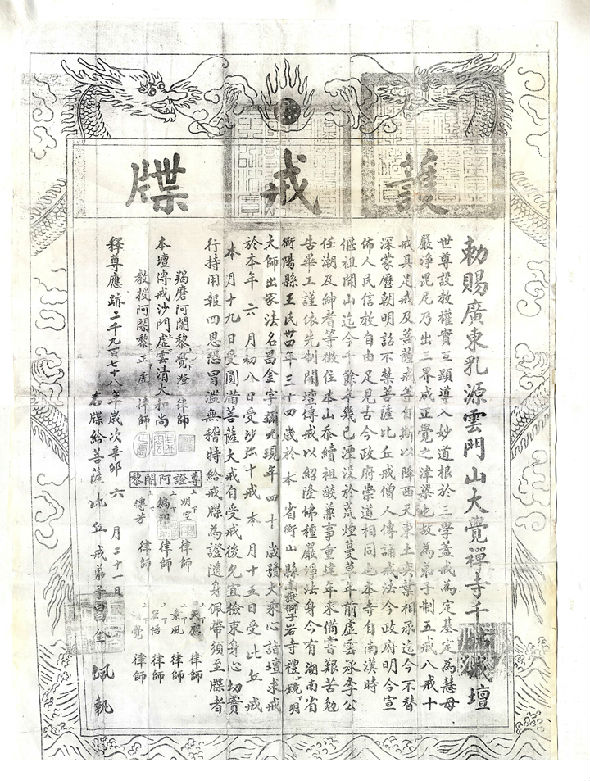 護戒牒
勅賜廣東乳源雲門山大覺禪寺千佛戒壇
世尊設教權實互顯導入妙道根於三學蓋戒為定基定為慧母
嚴淨毘尼乃出三界成正覺之津梁也故為弟子制五戒八戒十
戒具足戒及菩薩戒等自斯以降西天東土相承迄今不替
深蒙歷朝明詔不禁菩薩比丘戒僧人傳誦戒法今政府明令宣
佈人民信教自由足見古今政府崇道相同也本寺自南漢時
偃祖開山迄今千餘年幾已湮沒於荒煙蔓草年前虛雲承李公
任潮及紳耆等徵住本山忝續祖事重建年來備嘗艱苦勉
告畢工謹依先制開壇傳戒以紹隆佛種嚴淨法身今有湖南省
衡陽縣王民三十四歲於本省衡山縣般若寺禮鏡明
大師出家法名昌金字現年四十歲發大乘心詣壇求戒
於本年六月初八日受沙彌十戒本月十五日受比丘戒
本月十九日受圓滿菩薩大戒自受戒後宜檢束身心切實
行持用報四恩恐冒濫無稽特給戒牒為證隨身佩帶須至牒者
羯磨阿闍黎覺澄律師
本壇傳戒沙門虛雲清大和尚
教授阿闍黎律師
尊證阿闍黎
明空律師
律師
律師
律師
律師
律師
律師
釋尊應跡二千九百七十八年歲次辛卯六月二十一日
右牒給菩薩比丘戒弟子昌金佩執